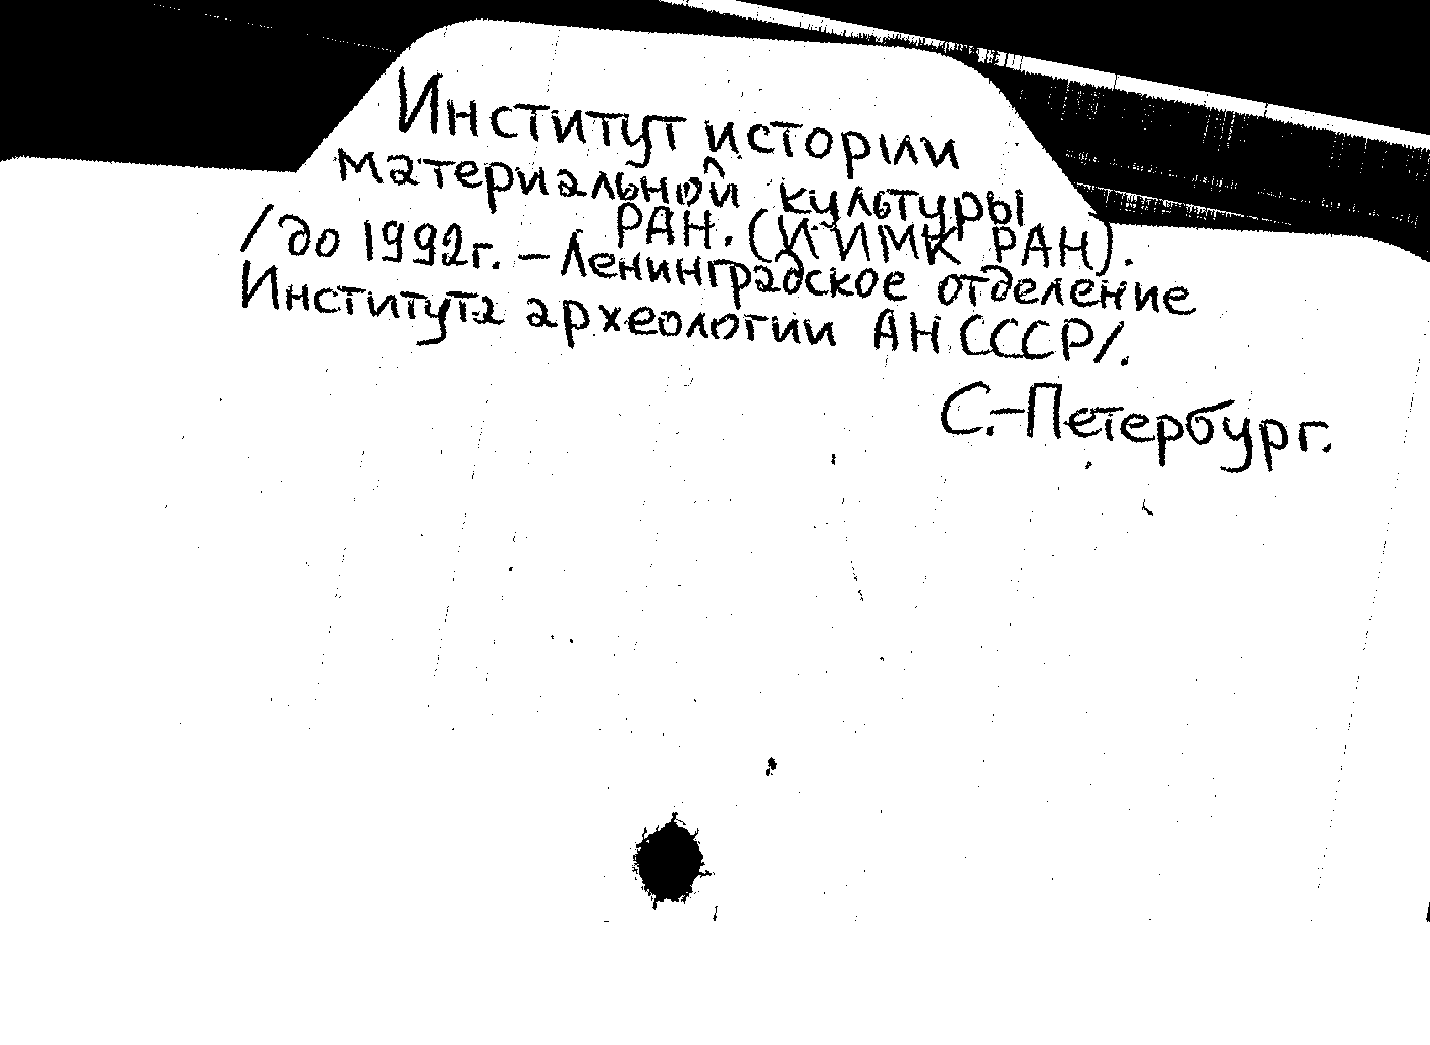 Институт истории
материальной культуры
РАН. (ИИМК РАН).
/до 1992г. – Ленинградское отделение
Института археологии АН СССР/.
С.-Петербург.